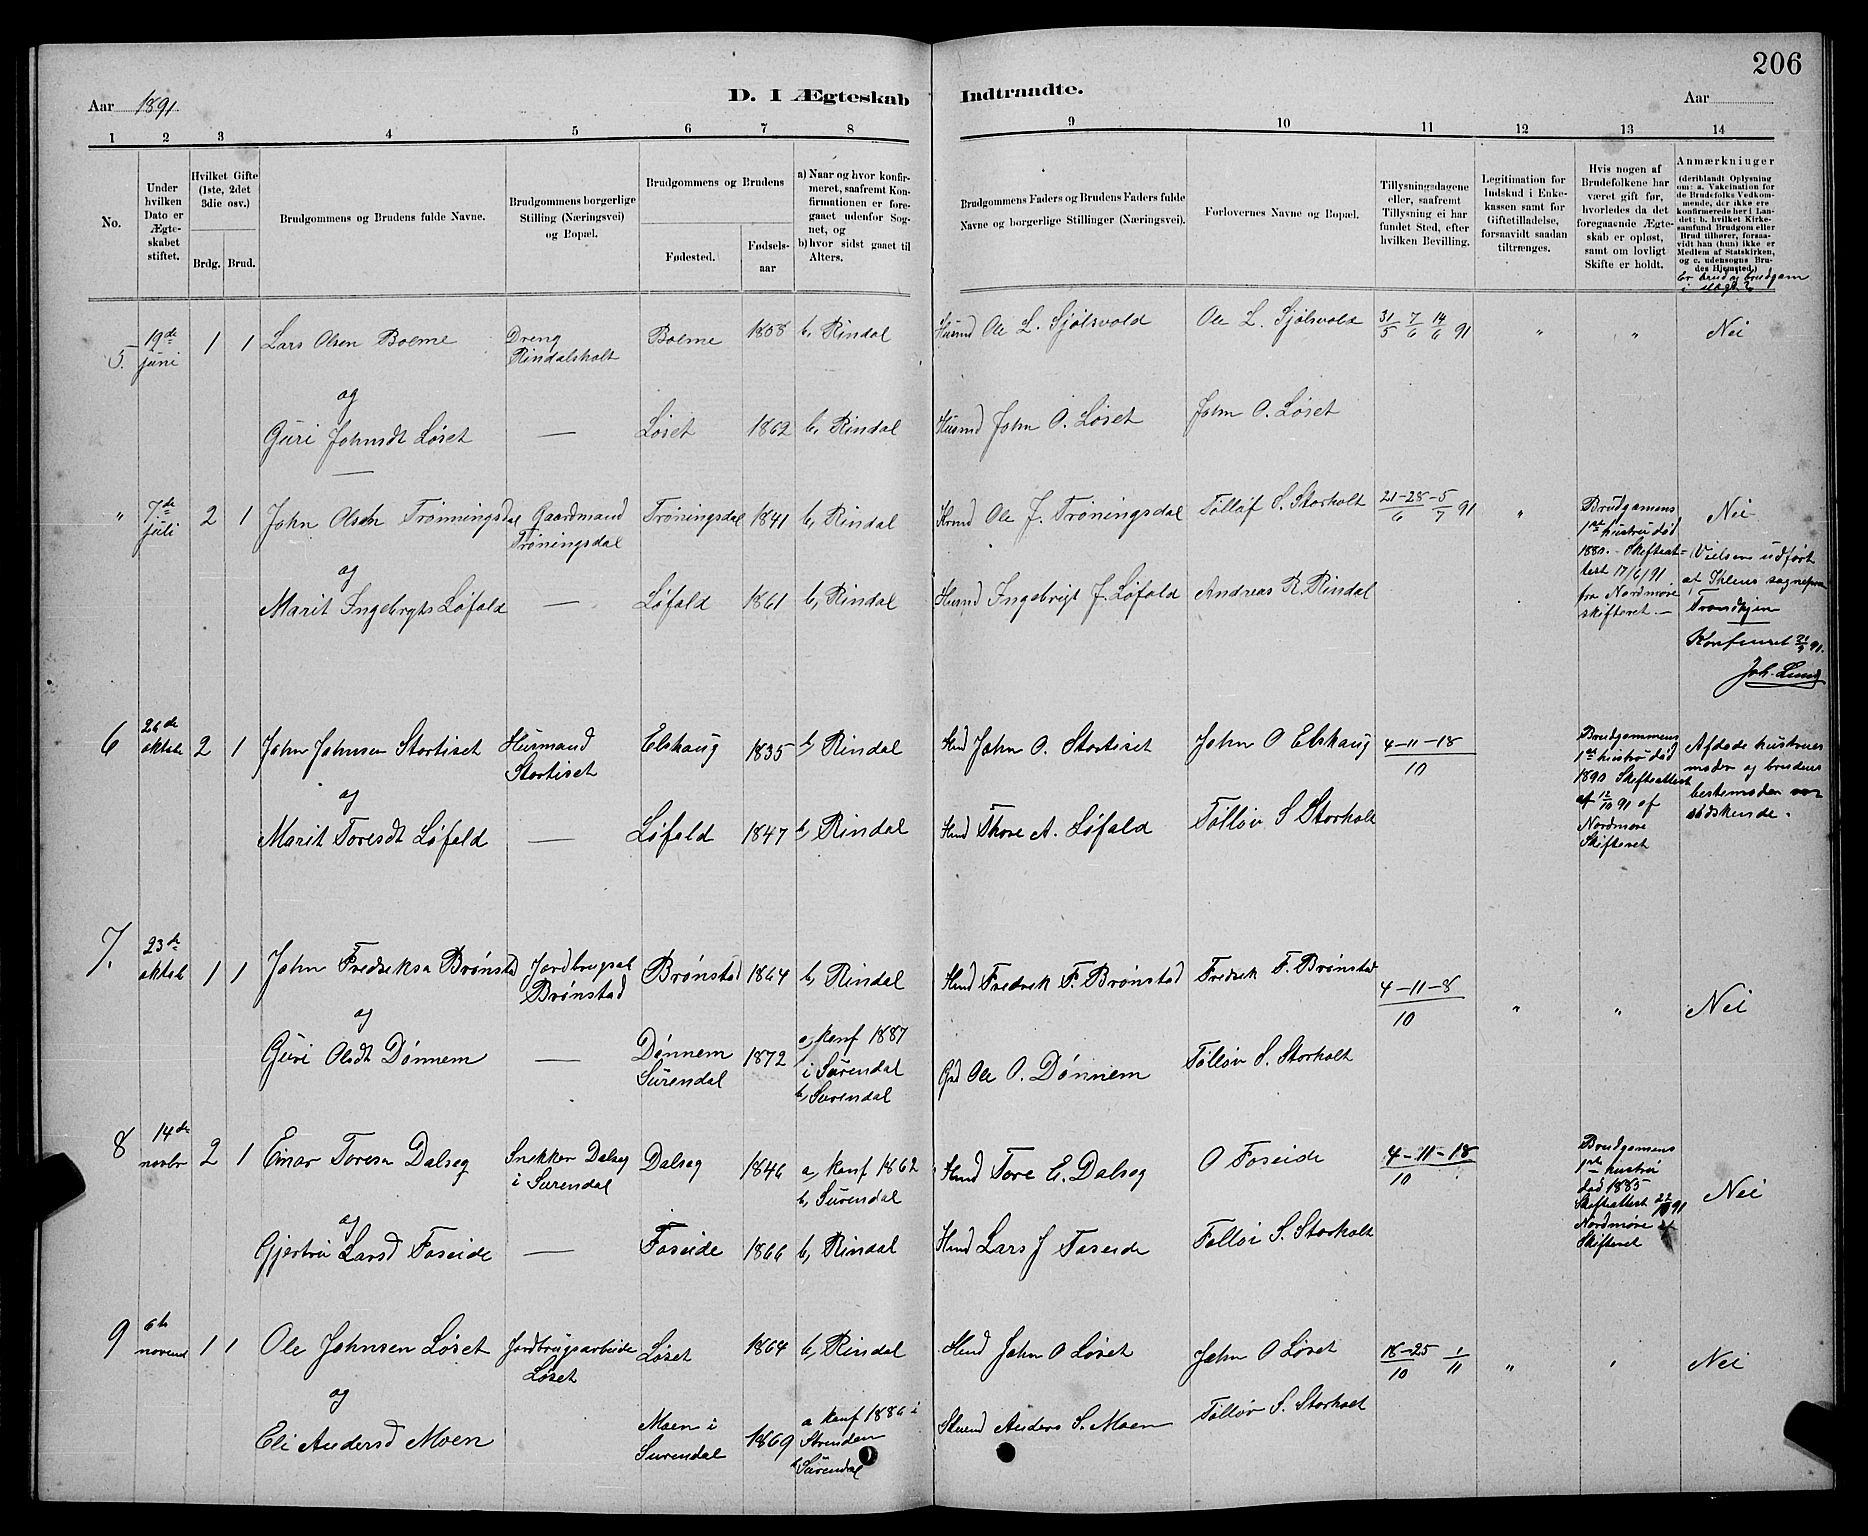 206
Aar 1891
D. I Ægteskab Indtraadte.
Aar
1 2 3 4 5 6 7 8 9 10 11 12 13 14
No.
Under hvilken Dato er Ægteskabet stiftet.
Hvilket Gifte (1ste, 2det 3die osv.)
Brdg. Brud.
Brudgommens og Brudens fulde Navne.
Brudgommens borgerlige Stilling (Næringsvei) og Bopæl.
Brudgommens og Brudens
Fødested.
Fødselsaar
a) Naar og hvor konfirmeret, saafremt Konfirmationen er foregaaet udenfor Sognet, og
b) hvor sidst gaaet til Alters.
Brudgommens Faders og Brudens Faders fulde Navne og borgerlige Stillinger (Næringsvei).
Forlovernes Navne og Bopæl.
Tillysningsdagene eller, saafremt Tillysning ei har fundet Sted, efter hvilken Bevilling.
Legitimation for Indskud i Enkekassen samt for Giftetilladelse, forsaavidt saadan tiltrænges.
Hvis nogen af Brudefolkene har været gift før, hvorledes da det foregaaende Ægteskab er opløst, samt om lovligt Skifte er holdt.
Anmærkninger
(deriblandt Oplysning om: a. Vakcination for de Brudefolks Vedkommende, der ikke ere konfirmerede her i Landet; b. hvilket Kirkesamfund Brudgom eller Brud tilhører, forsaavidt han (hun) ikke er Medlem af Statskirken, og c. udensogns Brudes Hjemsted.)
Er brud og brudgom
5. 19de juni 1 1 Lars Olsen Bolme Dreng Rindalsholt Bolme 1858 b, Rindal Husmd Ole L. Sjølsvold Ole L. Sjølsvold 31/5 7/6 14/6 91 " " Nei
og
Guri Johnsdt Løset — Løset 1862 b, Rindal Husmd John O. Løset John O. Løset
" 7de juli 2 1 John Olsen Trønningsdal Gaardmand Trøningsdal Trøningsdal 1841 b, Rindal Ole J. Trøningsdal Tølløf S. Storholt 21-28/6 -5/7 91 " Brudgamens 1ste hustru død 1880. - Skifteattest 17/6/91 fra Nordmøre skifteret. — Nei
(Vielsen udført af Ihlens sognepræst Trondhjem
Konfereret 91.
Joh. Lund
og
Marit Ingebrigts Løfald — Løfald 1861 b, Rindal Husmd Ingebrigt J. Løfald Andreas R. Rindal
6 26de oktob 2 1 John Johnsen Stortiset Husmand Stortiset Elshaug 1835 b, Rindal Hmd John O. Stortiset John O Elshaug 4-11-18/10 Brudgommens 1ste hustru død 1890 Skifteattest af 12/10 91 af Nordmøre Skifteret Afdøde hustrues moder og brudens bestemoder var sødskende.
og
Marit Toresdt Løfald — Løfald 1847 b, Rindal Hmd Thore A. Løfald Tølløv S Storholt
7. 23de oktob 1 1 John Fredriksn Brønstad Jordbrugsal Brønstad Brønstad 1864 b, Rindal Hmd Fredrik F. Brønstad Fredrik F. Brønstad 4-11-8/10 " " Nei
og
Guri Olsdt Dønnem — Dønnem Surendal 1872 a, konf 1887 i Surendal b, Surendal Gmd Ole O. Dønnem Tølløv S. Storholt
8 14de novbr 2 1 Einar Toresn Dalseg Snekker Dalseg i Surendal Dalseg 1846 a, konf 1862 b, Surendal Hmd Tore E. Dalseg O Foseide 4-11-18/10 Brudgamens 1ste hustru død 1885 Skifteattest 22/10 91 Nordmøre Skifteret Nei
og
Gjertru Larsd Foseide — Foseide 1866 b, Rindal Hmd Lars J Foseide Tølløv S. Storholt
9 6te novemb 1 1 Ole Johnsen Løset Jordbrugsarbeide Løset Løset 1864 b, Rindal Hmd John O Løset John O Løset 18-25/10 1/11 " " Nei
og
Eli Andersd Moen Moen i Surendal 1869 a konf 1886 i Surendal Anders S. Moen Tølløv S. Storholt